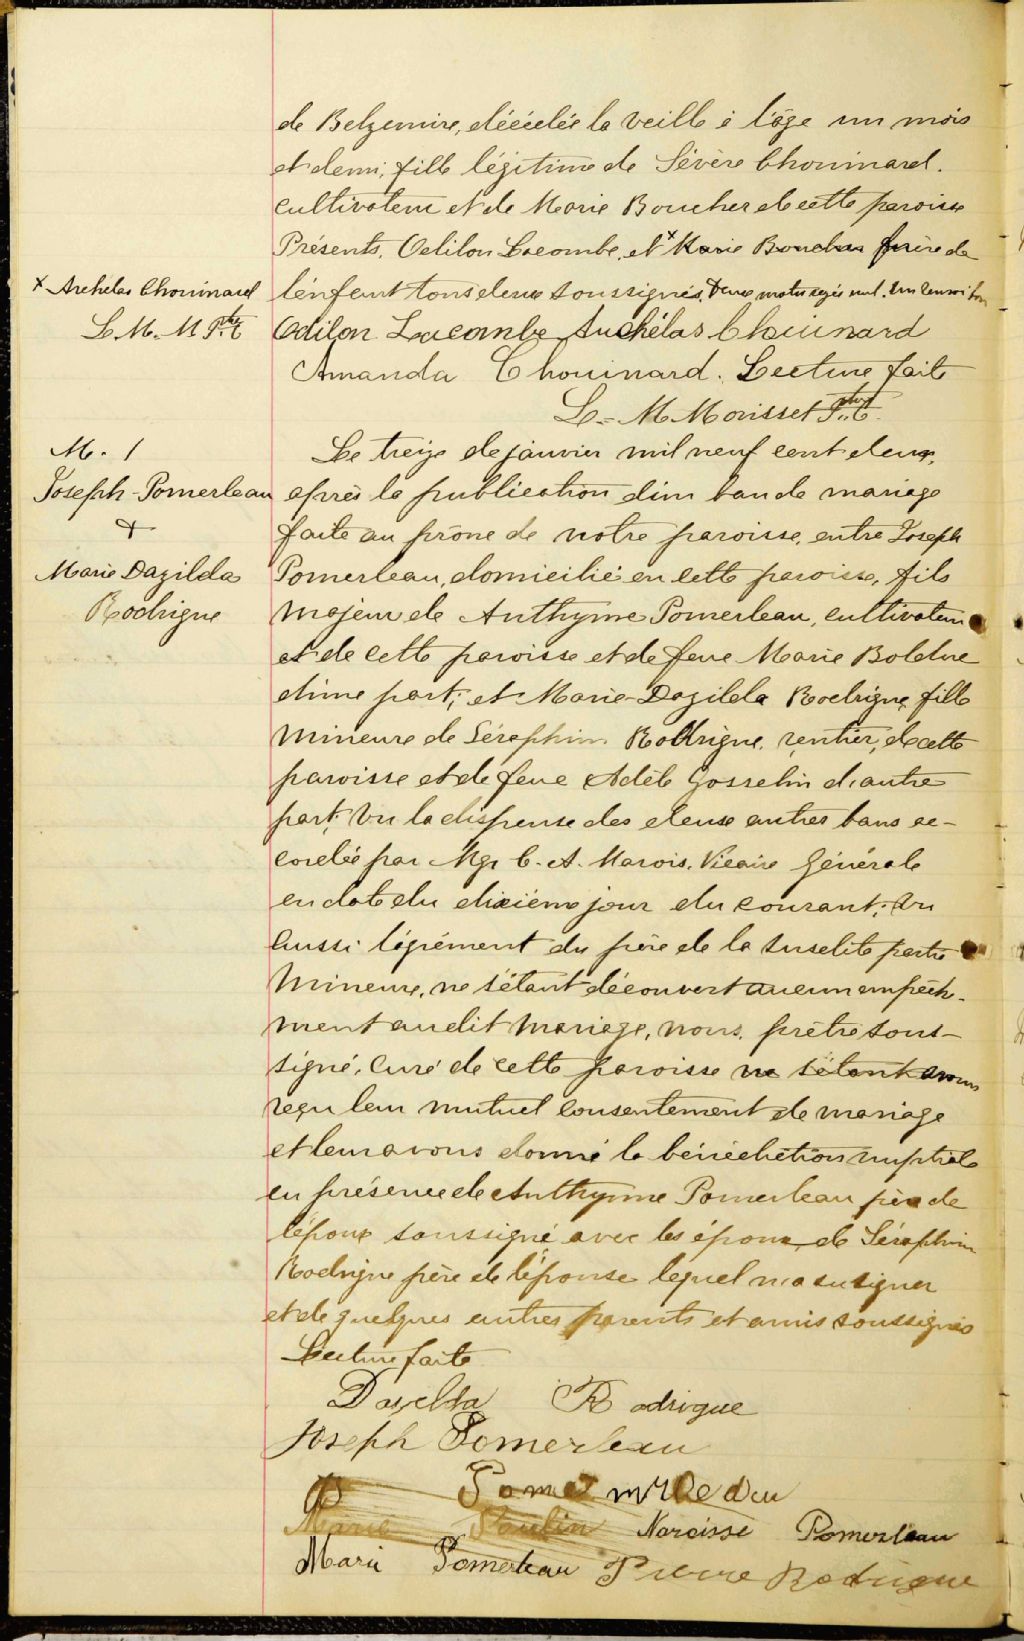 de Belzemire, décédée la veille à l'âge un mois
et demi, fille légitime de Sévère Chouinard.
cultivateur et de Marie Boucher de cette paroisse
Présents, Odilon Lacombe, et x Marie Boucher frère de
x Archélas Chouinard
l'enfant tous deux soussignés. Deux mots rayés nul. Un renvoi bon
L. M. M Ptre
Odilon Lacombe Archélas Chouinard
Amanda Chouinard. Lecture faite
L. M Morisset Ptre
M. 1
Joseph Pomerleau
&
Marie Dazilda
Rodrigue
Le treize de janvier mil neuf cent deux,
après la publication d'un ban de mariage
faite au prône de notre paroisse, entre Joseph
Pomerleau, domicilié en cette paroisse, fils
majeur de Anthyme Pomerleau, cultivateur
et de cette paroisse et de feue Marie Bolduc
d'une part; et Marie-Dazilda Rodrigue, fille
mineure de Séraphin Rodrigue, rentier, de cette
paroisse et de feue Adèle Gosselin d'autre
part; Vu la dispense des deux autres bans ac-
cordée par Mgr C. A. Marois, Vicaire Générale
en date du dixième jour du courant; Vu
aussi l'agrément du père de la susdite partie
mineure, ne s'étant découvert aucun empêch-
ment audit mariage, nous, prêtre sous-
signé, curé de cette paroisse ne s'étant avons
reçu leur mutuel consentement de mariage
et leur avons donné la bénédiction nuptiale
en présence de Anthyme Pomerleau père de
l'époux soussigné avec les époux, de Séraphin
Rodrigue père de l'épouse lequel n'a su signer
et de quelques autres parents et amis soussignés
Lecture faite
Dazilda Rodrigue
Joseph Pomerleau
Marie Poulin Narcisse Pomerleau
Marie Pomerleau Pierre Rodrigue